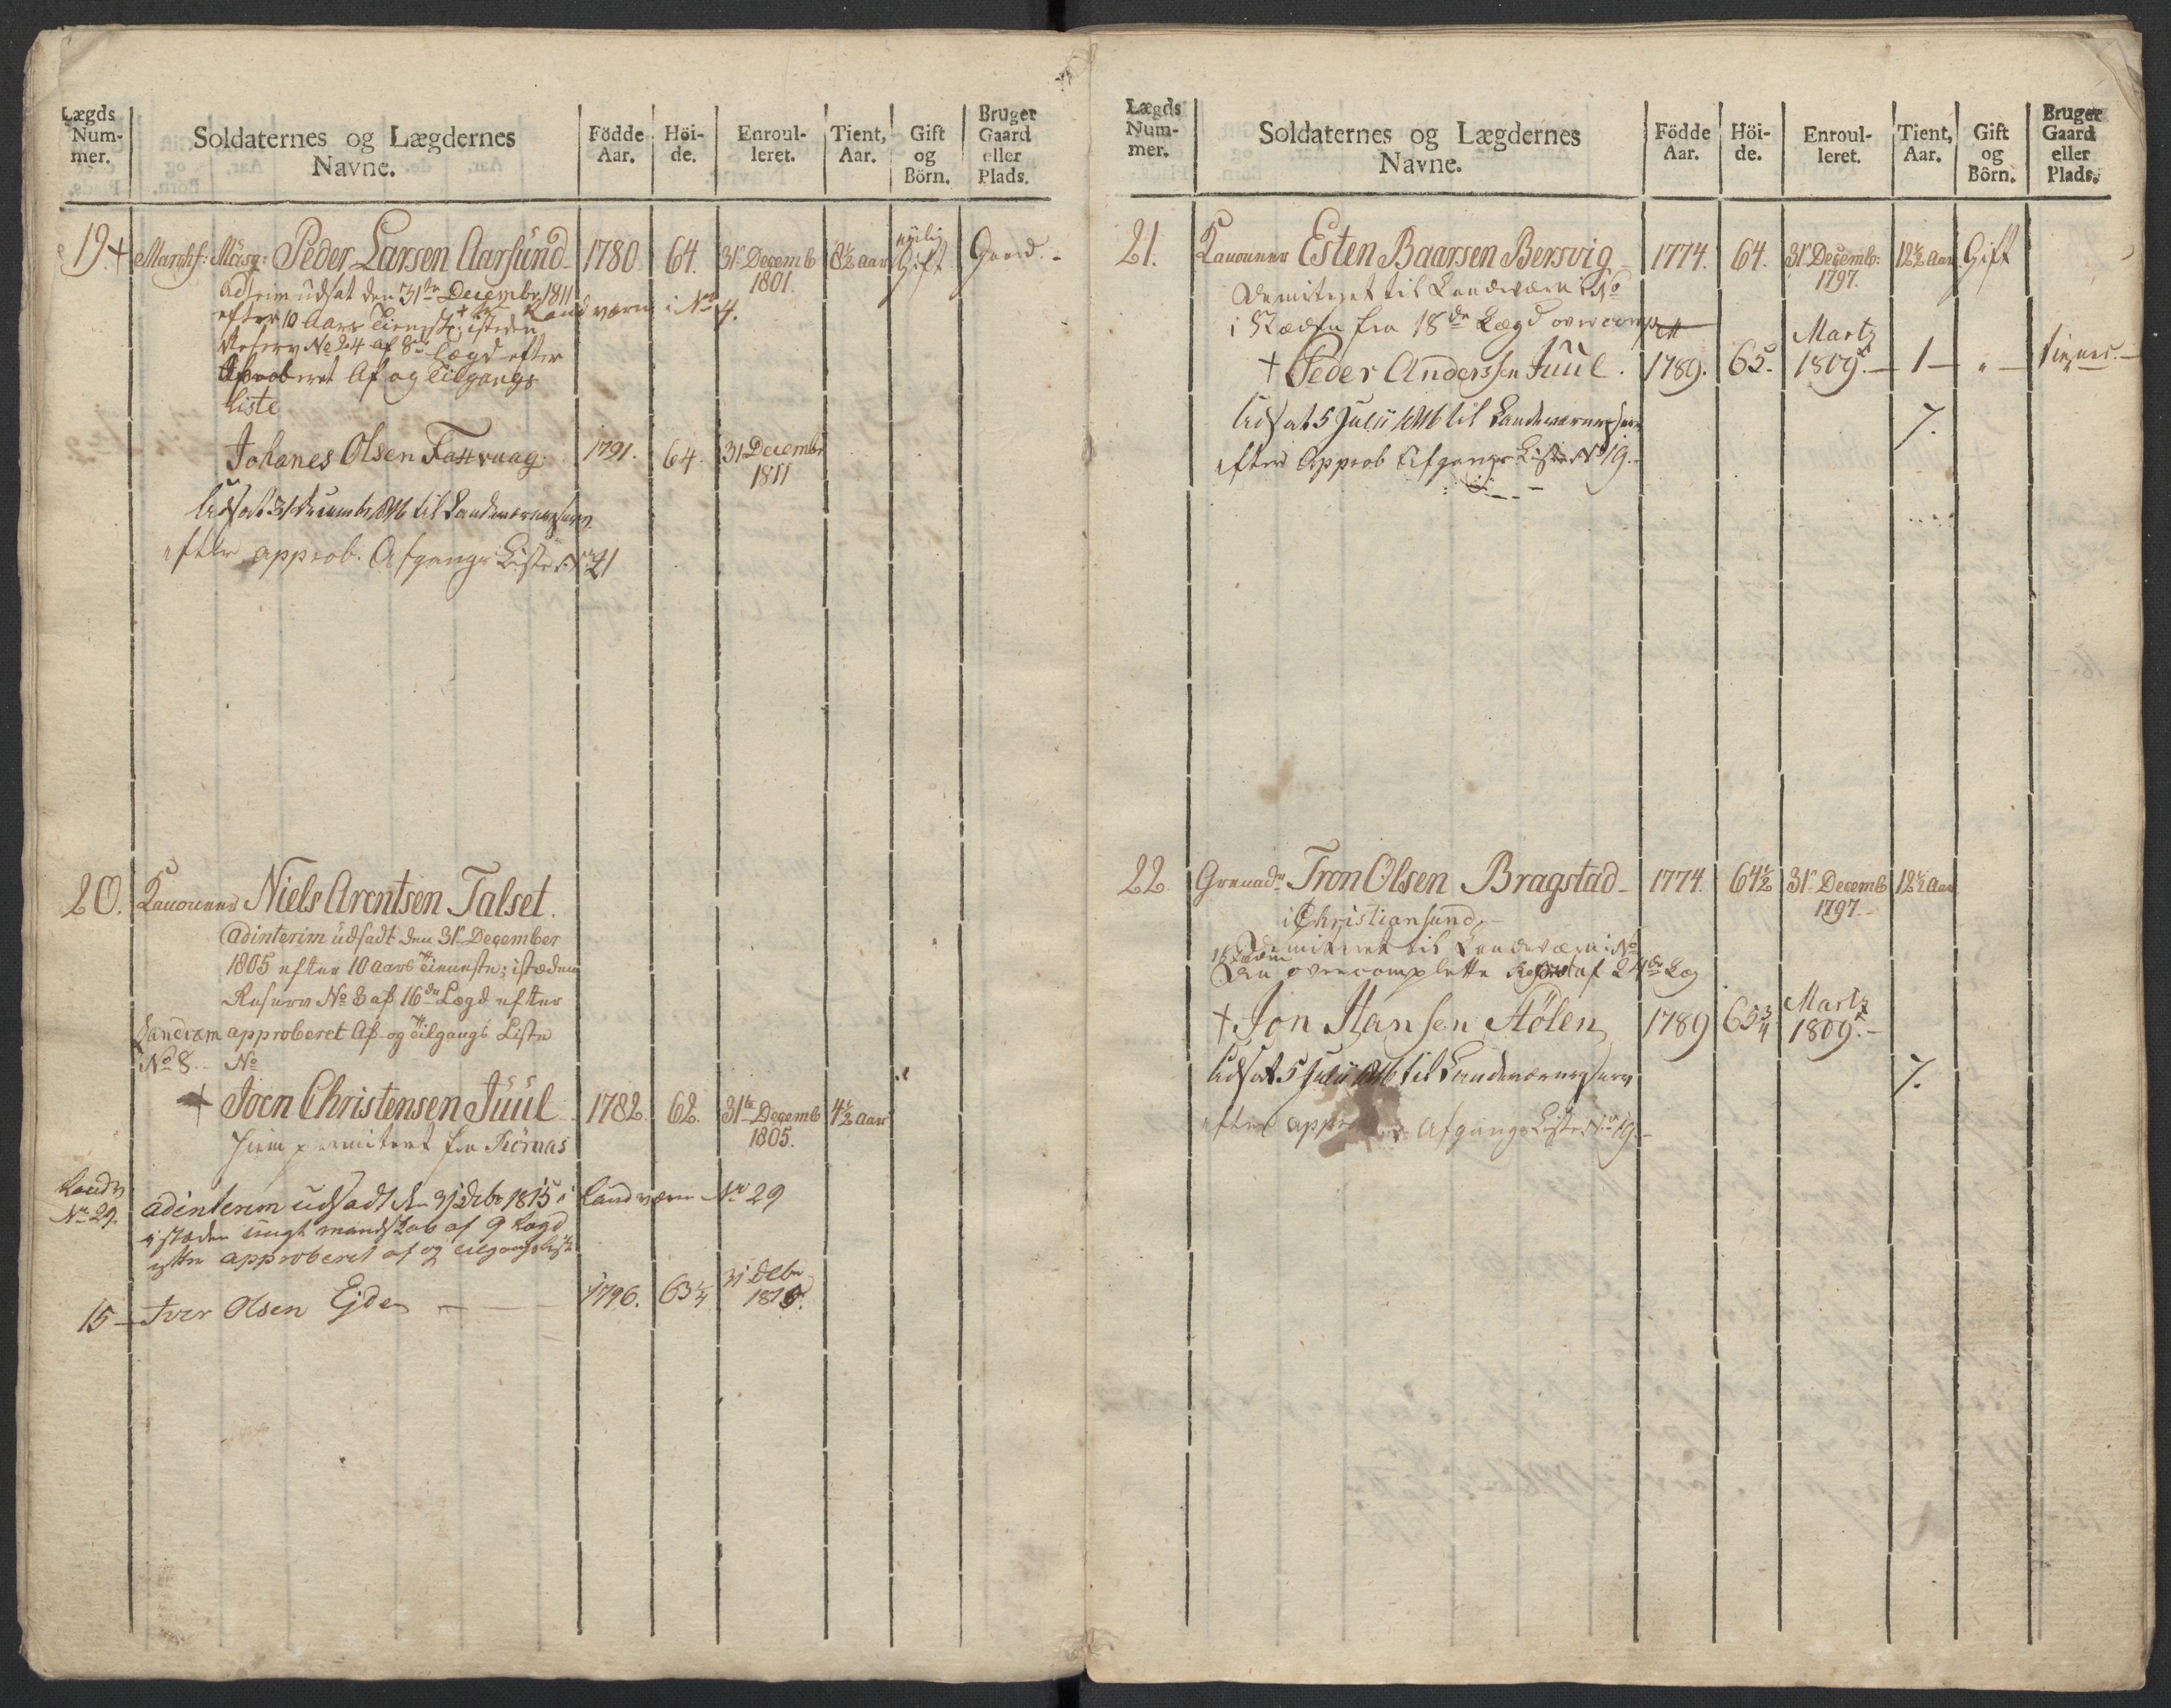 Lægds Num- mer.
Soldaternes og Lægdernes Navne.
Födde Aar.
Höi- de.
Enroul- leret.
Tient, Aar.
Gift og Börn.
Bruger Gaard eller Plads.
19. + Peder Larsen Aarsund 1780 64. 31 Decemb 1801. 8½ aar Gift Gaard.
udsat den 31te Decembr 1811 Landværn i No 4.
efter 10 Aars Tieneste isteden
Reserv No 24 af 8de Lægd efter
Aproberet Af og Tilgangs
Liste
Johanes Olsen 1791. 64. 31 Decembr 1811
Udsat 31 Decembr 1816 til
efter approb. Afgangs Liste No 21
20. Niels Arentsen Talset.
Adinterim udsadt den 31 December
1805 efter 10 aars Tieneste; istæden
Reserv No 8 af 16de Lægd efter
Landværn approberet Af- og Tilgangs Liste
No 8. No
+ Joen Christensen Juul 1782. 62. 31te Decemb 1805. 4½ aar
fra
Landv No 29. adinterim udsadt den 31 Debr 1815 i Landværn No 29
i stæden ungt mandskab af 9 Lægd
efter approberet af og tilgangsliste
15 - Iver Olsen Ejde 1796. 63¼ 31 Debr 1815.
Lægds Num- mer.
Soldaternes og Lægdernes Navne.
Födde Aar.
Höi- de.
Enroul- leret.
Tient, Aar.
Gift og Börn.
Bruger Gaard eller Plads.
21. Esten Baarsen Bersvig 1774. 64. 31 Decemb: 1797. 12½ Aar Gift
Demiteret til Landværn No
i Stæden fra 18de Lægd
+ Peder Anderssen Juul. 1789. 65. Martz 1809. 1
Udsat 5 Julii 1816 til 7.
efter Approb Afgangs Liste No 19.
22. Grenadr Tron Olsen Bragstad 1774. 64½ 31 Decemb 1797. 12½ Aar
i Christiansund.
Demiteret til Landværn No
i Stæden
Den overcomplette af 24de Læg
+ Jon Hansen Stölen 1789 65¾ Martz 1809.
Udsat 5 Julii 1816 til 7.
efter Afgangs Liste No 19.